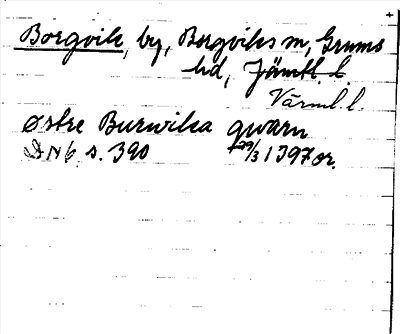 Borgvik, by, Borgviks sn, Grums
hd, Jämtl. l.
Värml l.
Østre Burwika qwarn
DN 6 s. 390 29/3 1397 or.